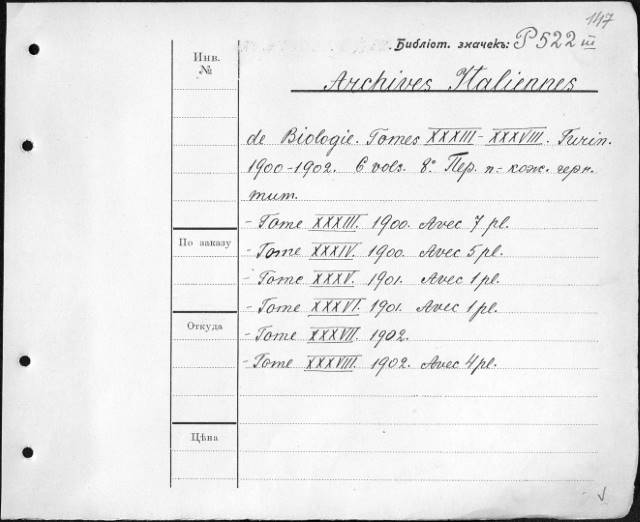 147
Библіот. значекъ: P 522 III
Инв.
№
Archives Italiennes
de Biologie. Tomes XXXIII - XXXVIII. Turin.
1900-1902. 6 vols. 8°. Пер. п=кож. черн.
тит.
- Tome XXXIII. 1900. Avec 7 pl.
По заказу
- Tome XXXIV. 1900. Avec 5 pl.
- Tome XXXV. 1901. Avec 1 pl.
- Tome XXXVI. 1901. Avec 1 pl.
Откуда
- Tome XXXVII. 1902.
- Tome XXXVIII. 1902. Avec 4 pl.
Цѣна